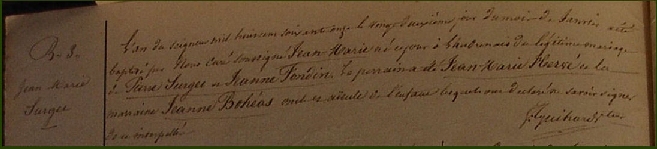 B. 3.
Jean Marie
Surget
L'an du seigneur mil huit cent soixante onze le vingt deuxième jour du mois de Janvier a été
baptisé par Nous Curé soussigné Jean-Marie né ce jour à du légitime mariage
de Pierre Surget et Jeanne Fondin. Le parrain a été Jean-Marie Hervé et la
marraine Jeanne Bohéas de l'enfant lesquels ont déclaré ne savoir signer
de ce interpellés.